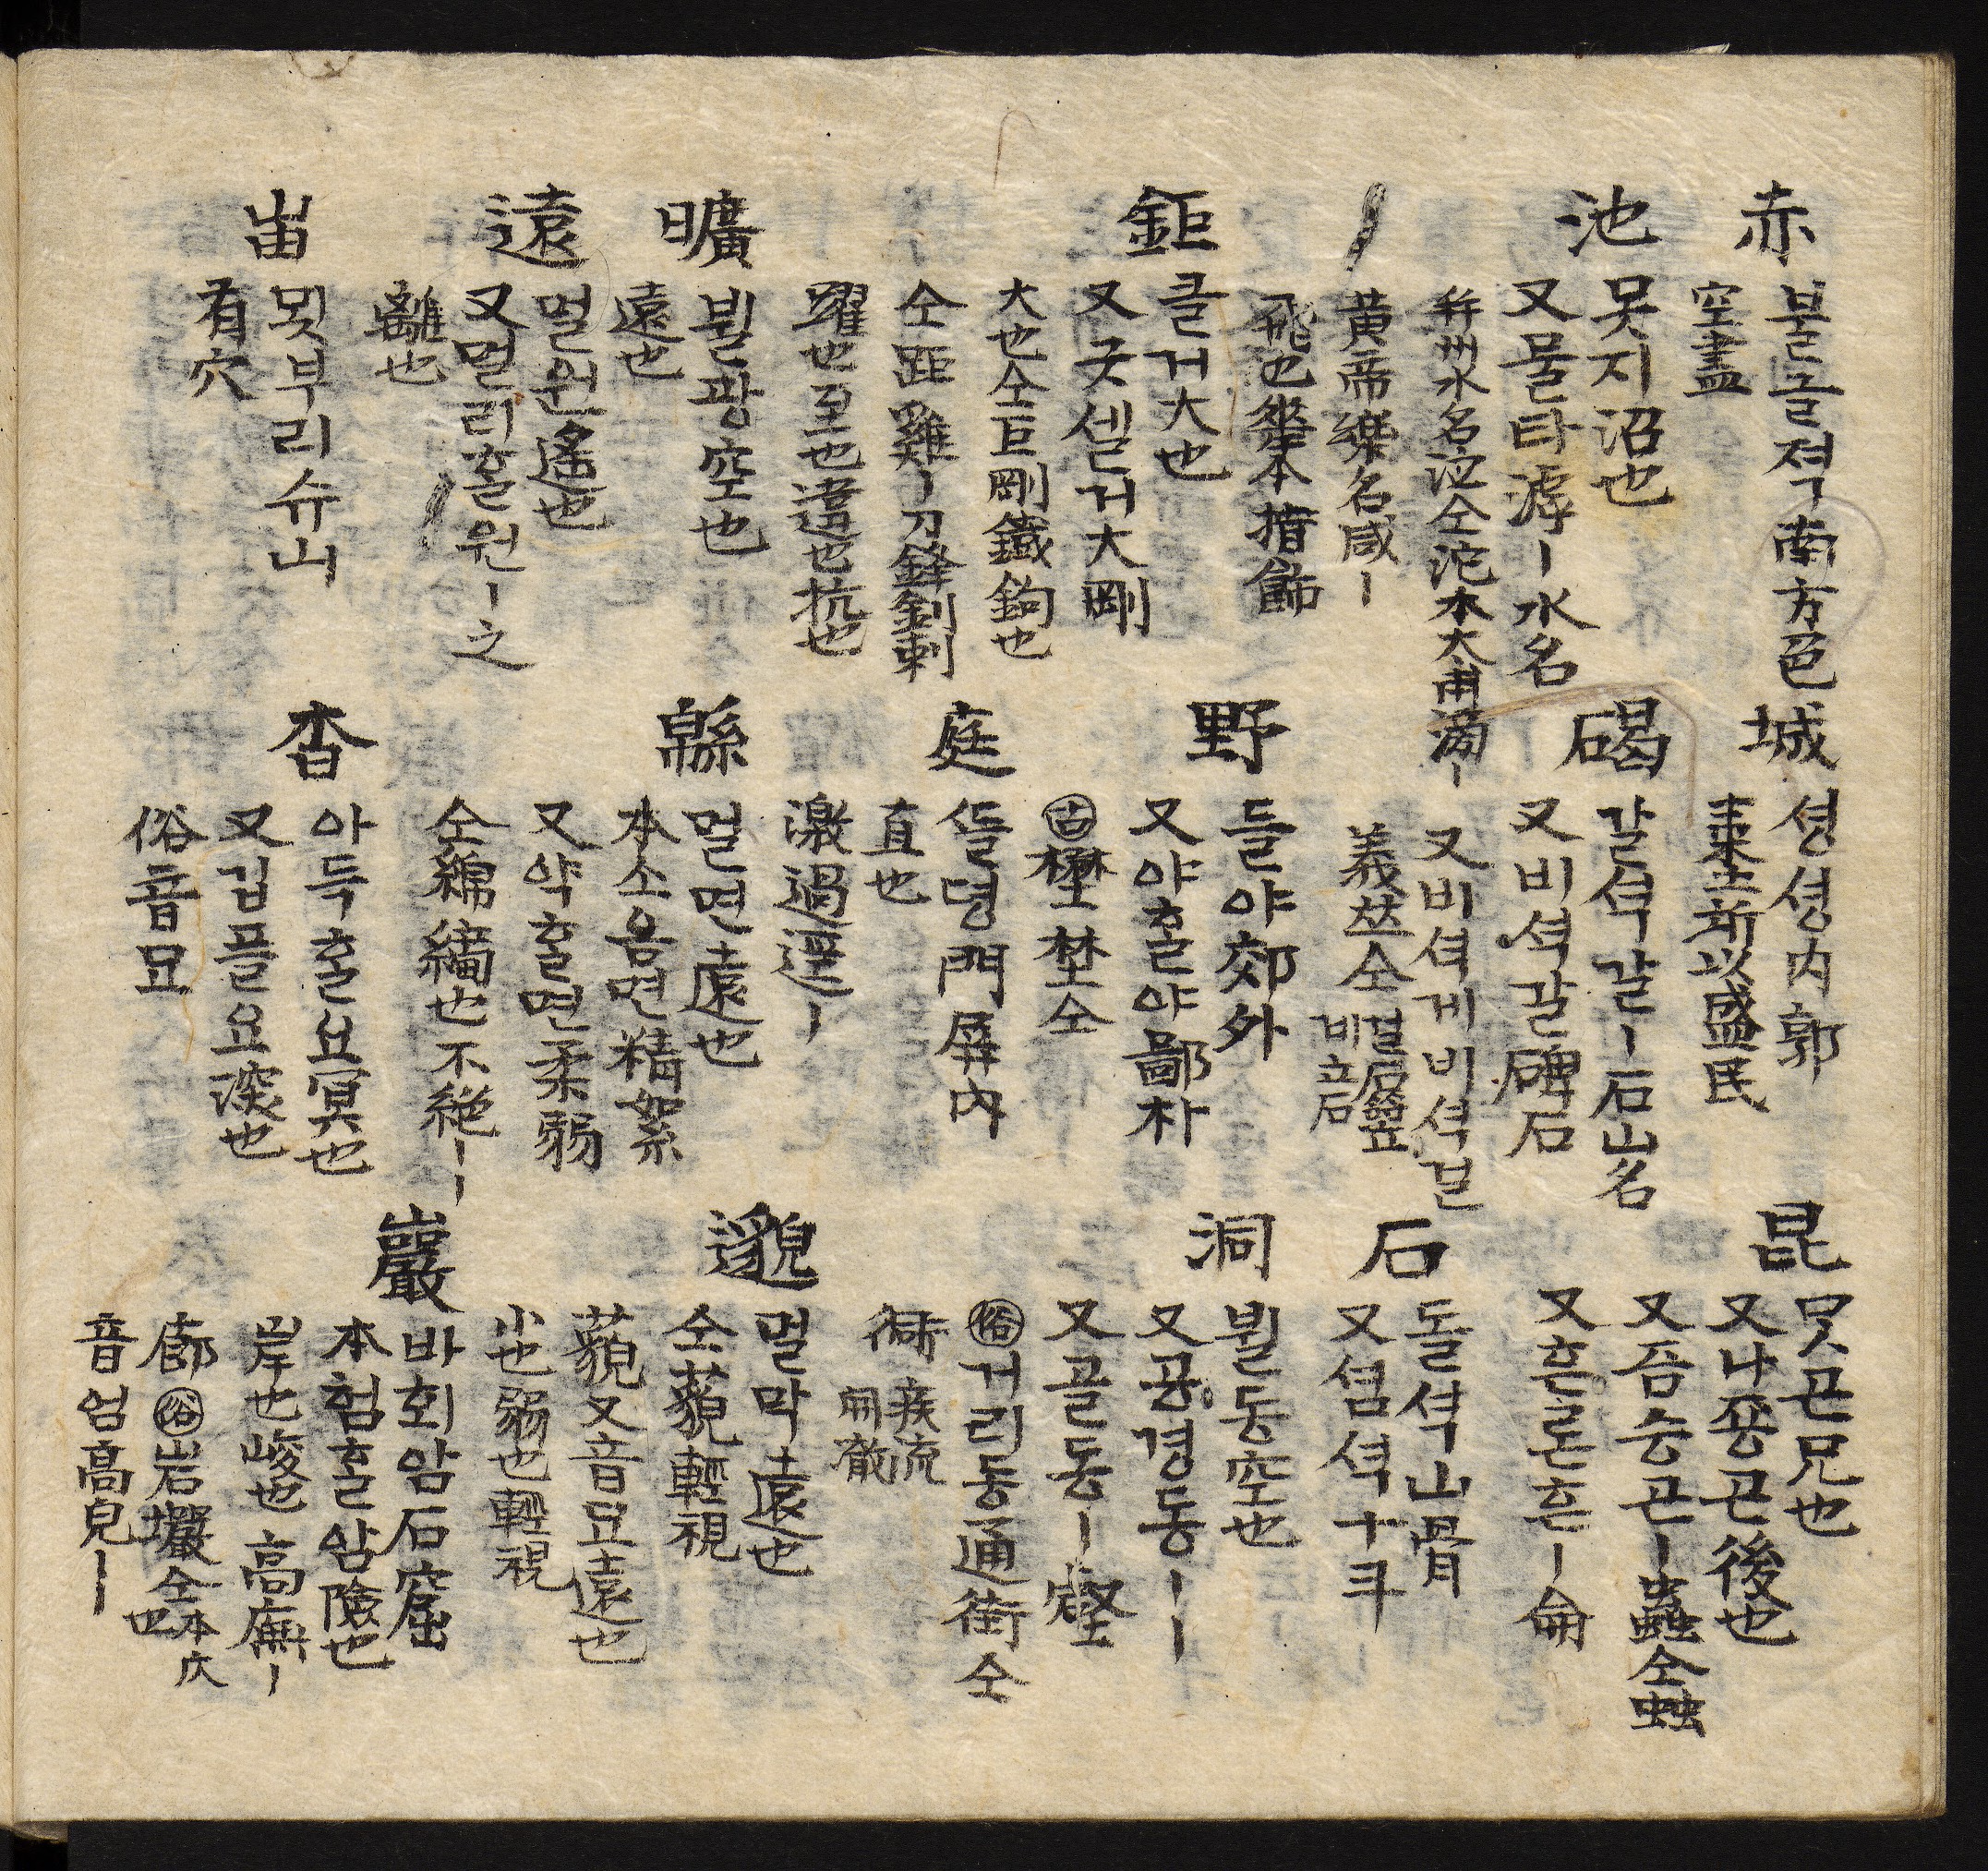 赤
불글젹南方色
空盡
城
셩셩內郭
棗土所以盛民
昆
맛곤兄也
又나죵곤後也
又곰승곤ㅣ蟲仝䖵
又흔론흔ㅣ侖
池
못지沼也
又물타滹ㅣ水名
幷州水名泒仝沱本大雨滂ㅣ
黃帝樂名咸ㅣ
飛也㘦本揩飾
碣
갈셕갈ㅣ石山名
又비셕갈碑石
又비셕게비셕걸
石
돌셕山骨
又셤셕十斗
鉅
클거大也
又굿셀거大剛
大也仝巨剛鐵鉤也
仝距雞ㅣ刀鋒劍刺
躍也至也違也抗也
野
들야郊外
又야홀야鄙朴
㊀古壄埜仝
洞
뷜동空也
又공경동ㅣㅣ
又골동ㅣ壑
俗거리동通街仝
衕疾流
開徹
庭
뜰뎡門屛內
直也
激過逕ㅣ
曠
뷜광空也
遠也
遠
멀원遙也
又멀리홀원ㅣ之
離也
緜
멀면遠也
本소옴면精絮
又약홀면柔弱
仝綿緬也不絶ㅣㅣ
邈
멀막遠也
仝藐輕視
藐又音묘遠也
小也弱也輕視
巖
바회암石窟
本험홀암險也
岸也峻也高廡ㅣ
廊俗岩壧仝
音엄高皃ㅣ
峀
묏부리슈山
有穴
杳
아득홀묘冥也
又깁플요深也
俗音묘